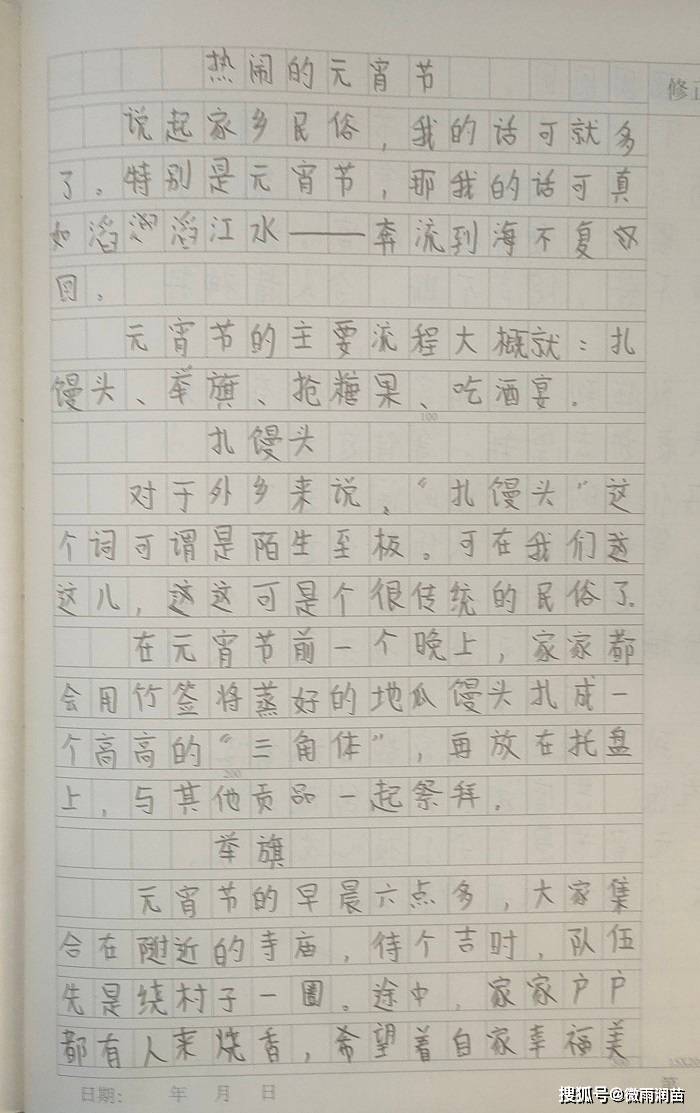 热闹的元宵节
修正
说起家乡民俗，我的话可就多
了。特别是元宵节，那我的话可真
如滔滔江水——奔流到海不复
回。
元宵节的主要流程大概就：扎
馒头、举旗、抢糖果、吃酒宴。
100
扎馒头
对于外乡来说，“扎馒头”这
个词可谓是陌生至极。可在我们这
这儿，这这可是个很传统的民俗了。
在元宵节前一个晚上，家家都
会用竹签将蒸好的地瓜馒头扎成一
个高高的“三角体”，再放在托盘
200
上，与其他贡品一起祭拜。
举旗
元宵节的早晨六点多，大家集
合在附近的寺庙，待个吉时，队伍
先是绕村子一圈。途中，家家户户
都有人来烧香，希望着自家幸福美
日期： 年 月 日
搜狐号@微雨润苗